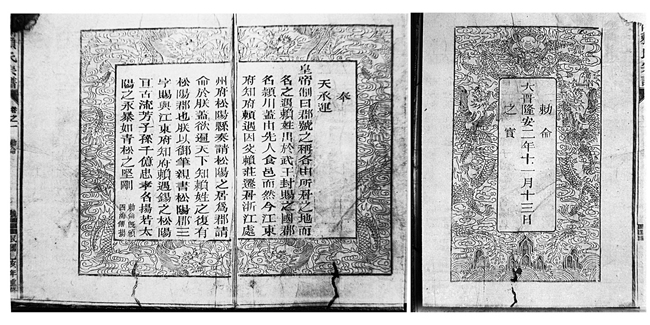 奉
天承運
皇帝制曰郡號之稱各由所封之地而
名之遇賴姓出於武王封賜之國郡
名潁川蓋由先人食邑而然今江東
府知府賴遇因父賴莊遷居浙江處
州府松陽縣奏請松陽之居爲郡請
命於朕蓋欲遍天下知賴姓之復有
松陽郡也朕以御筆親書松陽郡三
字賜與江東府知府賴遇錫之松陽
亘古流芳子孫千億忠孝名揚若太
陽之永暴如青松之堅剛
勅命
大晉隆安二年十一月十三日
之寶